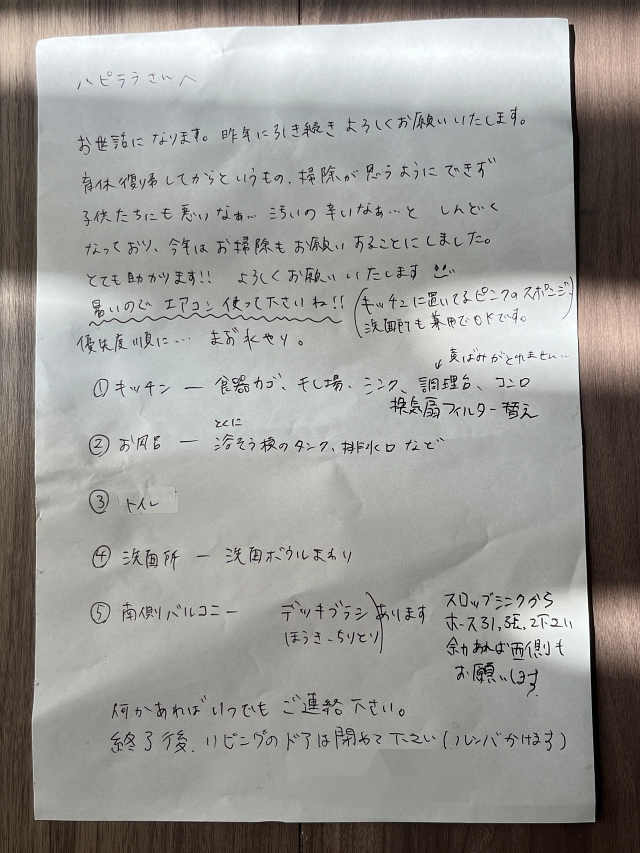 ハピララさんへ
お世話になります。昨年に引き続きよろしくお願いいたします。
育休復帰してからというもの、掃除が思うようにできず
子供たちにも悪いなぁ… 汚いの辛いなぁ…と しんどく
なっており、今年はお掃除もお願いすることにしました。
とても助かります!! よろしくお願いいたします
暑いので エアコン使って下さいね!!
(キッチンに置いてるピンクのスポンジ
洗面所も兼用でOKです。)
優先度順に… まど 水やり。
↙黄ばみがとれません…
① キッチン ー 食器カゴ、干し場、シンク、調理台、コンロ
換気扇フィルター替え
とくに
② お風呂 ー 浴そう横のタンク、排水口 など
③ トイレ
④ 洗面所 ー 洗面ボウルまわり
⑤ 南側バルコニー デッキブラシ
ほうき・ちりとり)あります
スロップシンクから
ホース引っ張って下さい
余力あれば西側も
お願いします
何かあればいつでも ご連絡下さい。
終了後、リビングのドアは閉めて下さい(ルンバかけます)